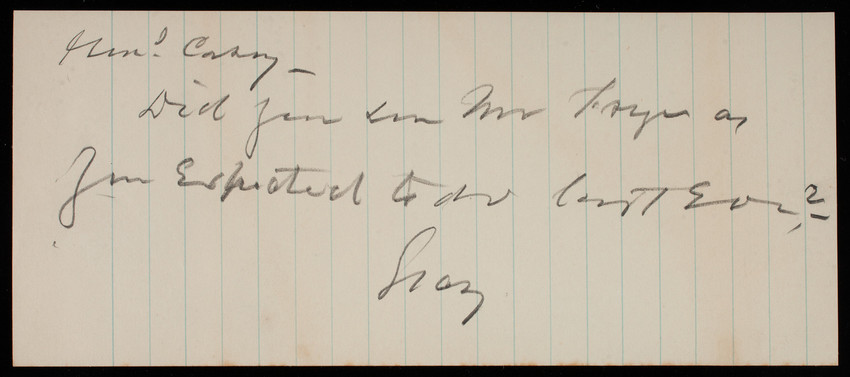 Genl. Casey –
Did you see Mr Frye as
you Expected to do last Eve,?
Gray